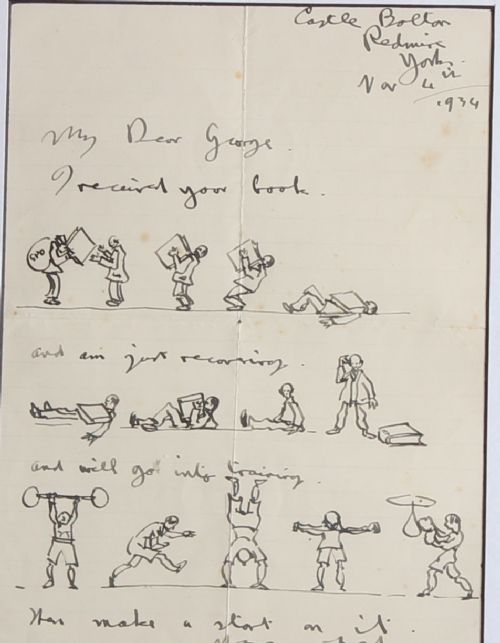 Castle Bolton
Redmire
Yorks.
Nov 4th
1934
My Dear George.
I received your book.
and am just recovering.
and will go into training.
then make a start on it.